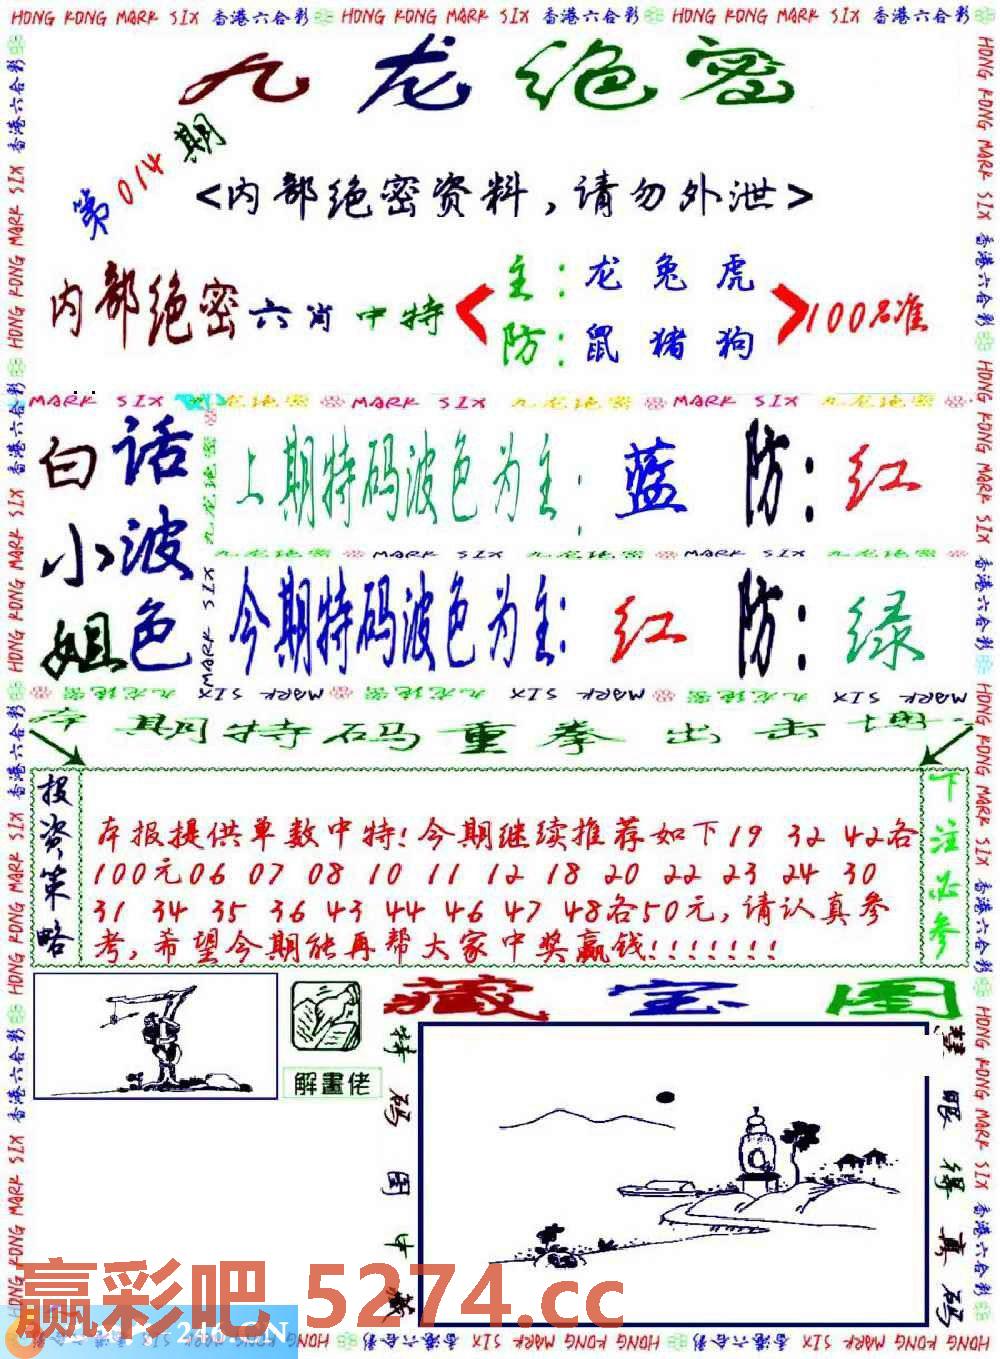 HONG KONG MARK SIX 香港六合彩 HONG KONG MARK SIX 香港六合彩 HONG KONG MARK SIX 香港六合彩
九龙绝密
第014期
<内部绝密资料,请勿外泄>
内部绝密六肖中特
主:龙兔虎
防:鼠猪狗
100%准
MARK SIX 九龙绝密 MARK SIX 九龙绝密 MARK SIX 九龙绝密
白小姐
话波色
上期特码波色为主:蓝 防:红
九龙绝密 MARK SIX 九龙绝密 MARK SIX 九龙绝密
今期特码波色为主:红 防:绿
MARK SIX 九龙绝密 MARK SIX 九龙绝密 MARK SIX 九龙绝密
本期特码重拳出击
投资策略
本报提供单数中特!今期继续推荐如下19 32 42各
100元06 07 08 10 11 12 18 20 22 23 24 30
31 34 35 36 43 44 46 47 48各50元,请认真参
考,希望今期能再帮大家中奖赢钱!!!!!!!
下注必参
藏宝图
解畫佬
特码图中藏
慧眼得真码
赢彩吧 5274.cc
246.CN
HONG KONG MARK SIX 香港六合彩 HONG KONG MARK SIX 香港六合彩